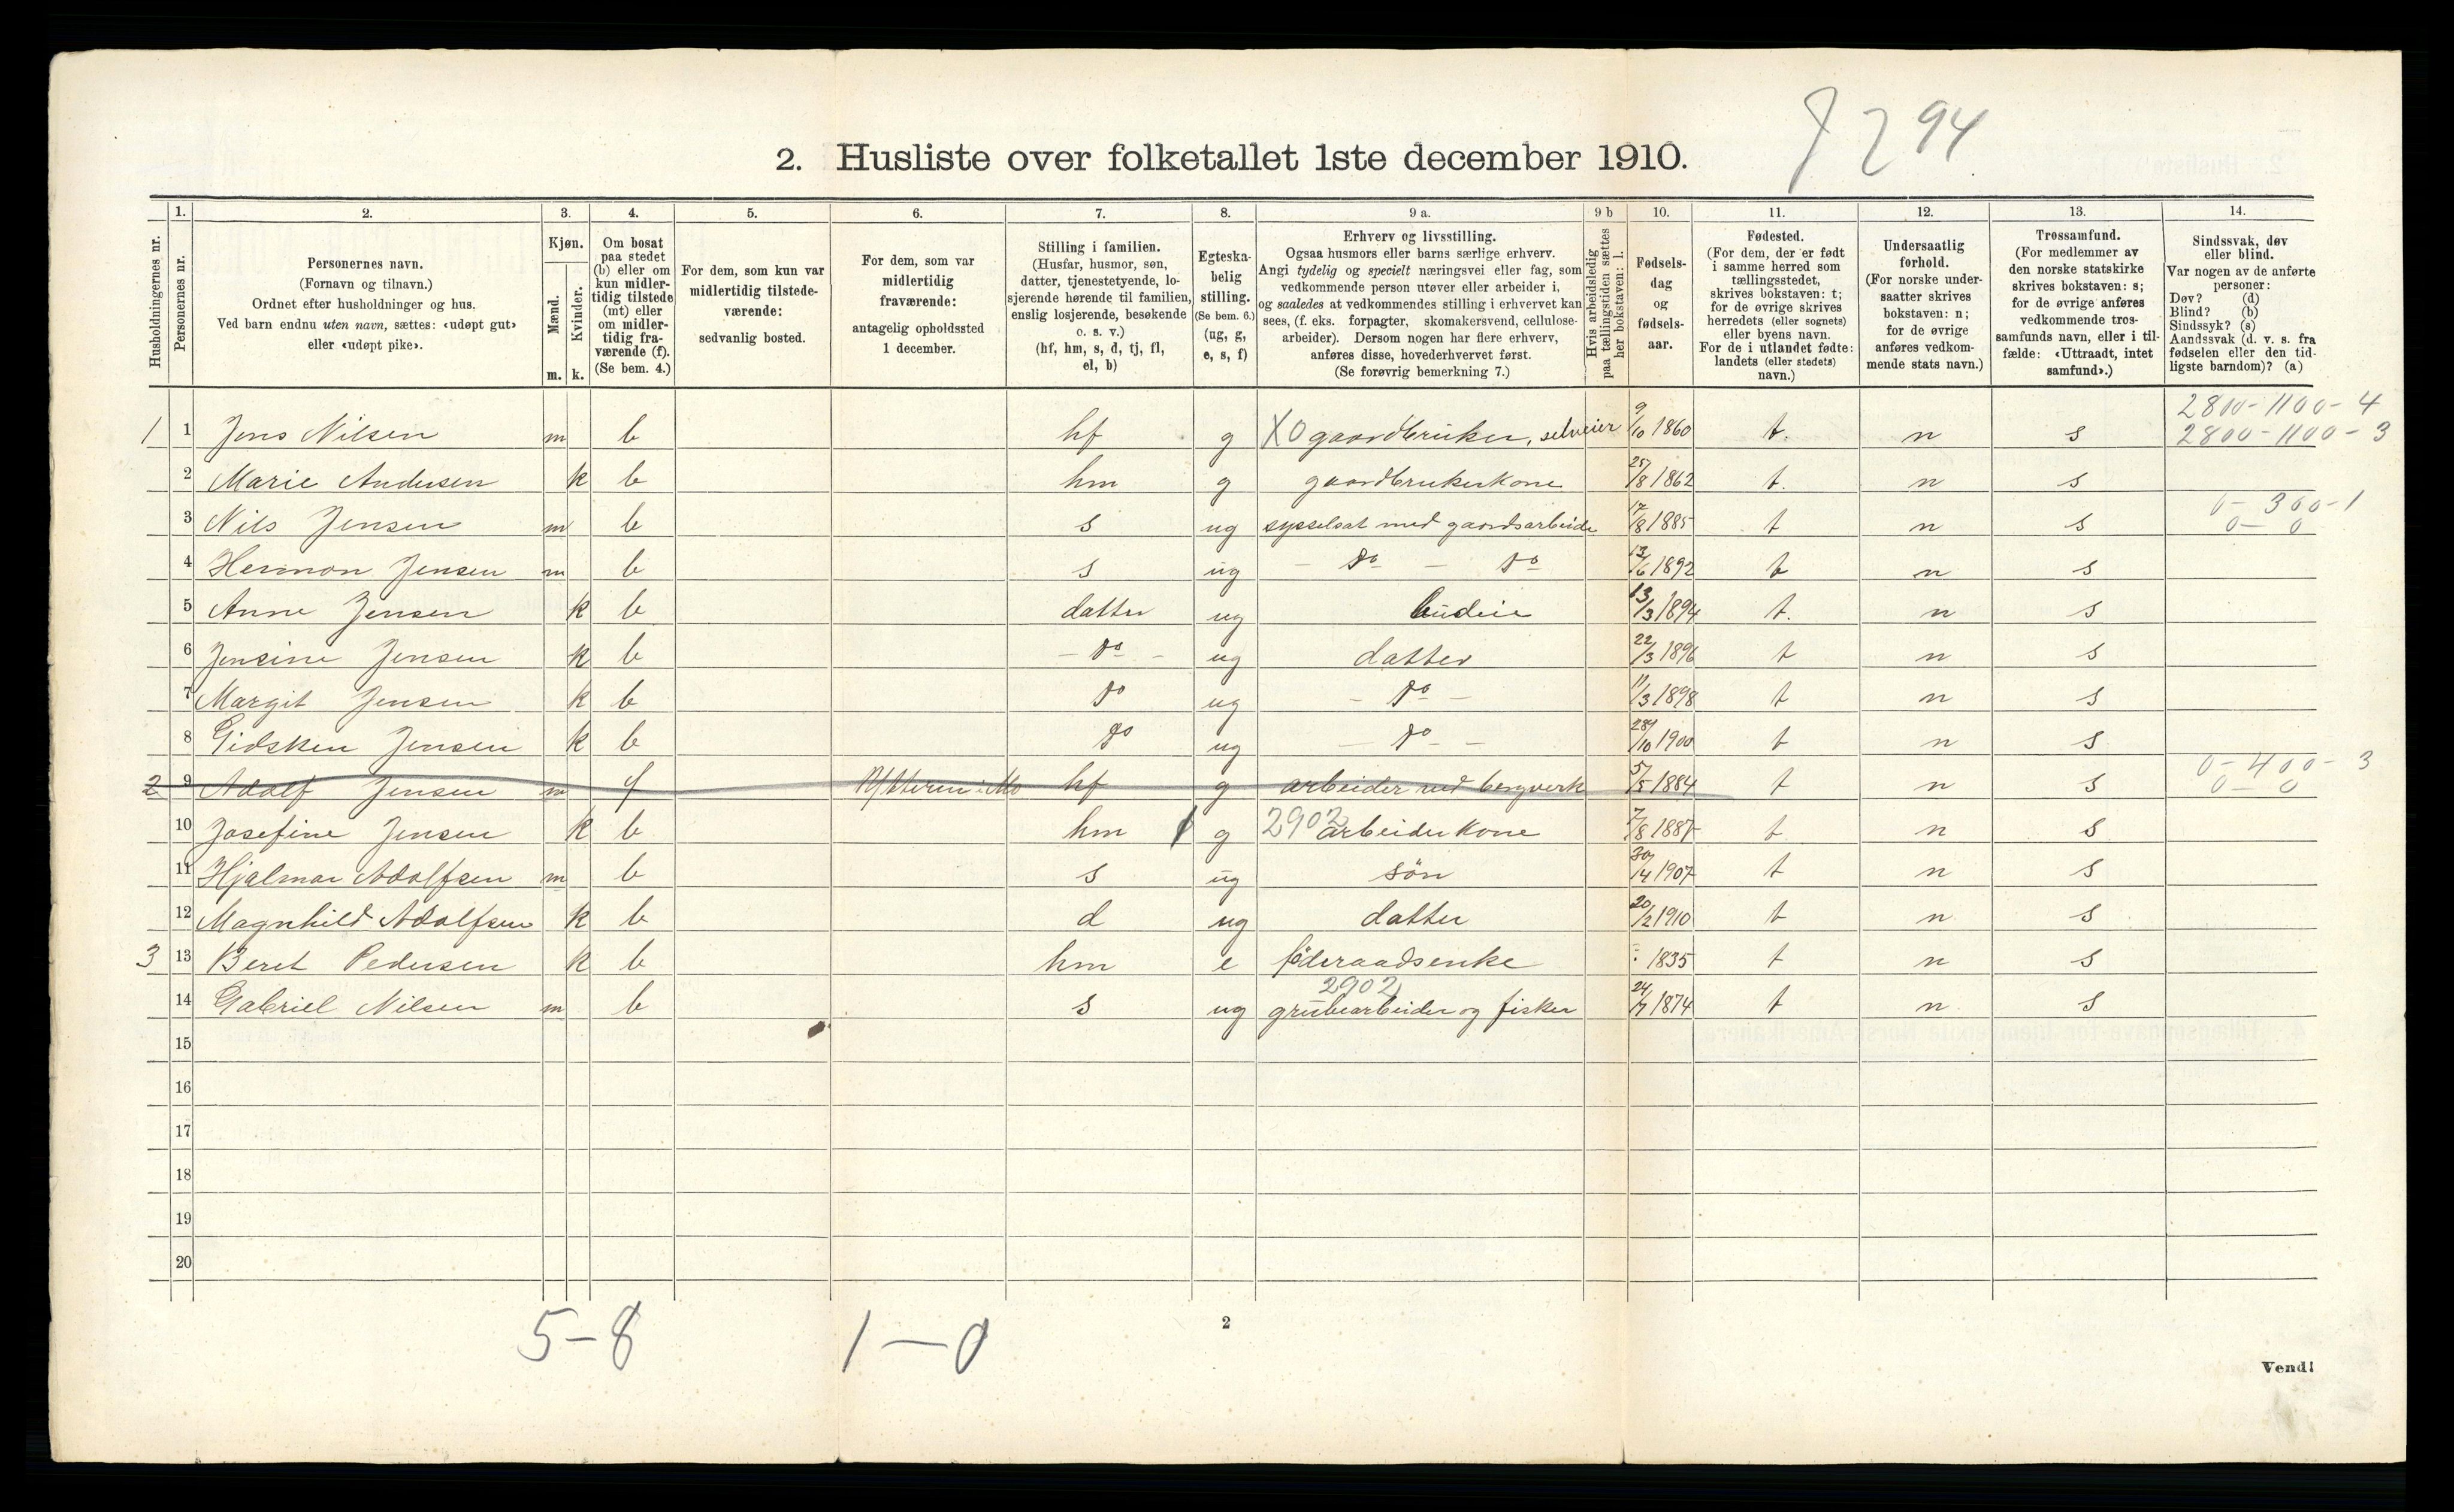 7 2 94
2. Husliste over folketallet 1ste december 1910.
1. 2. 3. 4. 5. 6. 7. 8. 9 a. 9 b 10. 11. 12. 13. 14.
Husholdningernes nr.
Personernes nr.
Personernes navn.
(Fornavn og tilnavn.)
Ordnet efter husholdninger og hus.
Ved barn endnu uten navn, sættes: «udøpt gut»
eller «udøpt pike».
Kjøn.
Mænd.
Kvinder.
m. k.
Om bosat
paa stedet
(b) eller om
kun midler-
tidig tilstede
(mt) eller
om midler-
tidig fra-
værende (f).
(Se bem. 4.)
For dem, som kun var
midlertidig tilstede-
værende:
sedvanlig bosted.
For dem, som var
midlertidig
fraværende:
antagelig opholdssted
1 december.
Stilling i familien.
(Husfar, husmor, søn,
datter, tjenestetyende, lo-
sjerende hørende til familien,
enslig losjerende, besøkende
o. s. v.)
(hf, hm, s, d, tj, fl,
el, b)
Egteska-
belig
stilling.
(Se bem. 6.)
(ug, g,
e, s, f)
Erhverv og livsstilling.
Ogsaa husmors eller barns særlige erhverv.
Angi tydelig og specielt næringsvei eller fag, som
vedkommende person utøver eller arbeider i,
og saaledes at vedkommendes stilling i erhvervet kan
sees, (f. eks. forpagter, skomakersvend, cellulose-
arbeider). Dersom nogen har flere erhverv,
anføres disse, hovederhvervet først.
(Se forøvrig bemerkning 7.)
Hvis arbeidsledig
paa tællingstiden sættes
her bokstaven: l.
Fødsels-
dag
og
fødsels-
aar.
Fødested.
(For dem, der er født
i samme herred som
tællingsstedet,
skrives bokstaven: t;
for de øvrige skrives
herredets (eller sognets)
eller byens navn.
For de i utlandet fødte:
landets (eller stedets)
navn.)
Undersaatlig
forhold.
(For norske under-
saatter skrives
bokstaven: n;
for de øvrige
anføres vedkom-
mende stats navn.)
Trossamfund.
(For medlemmer av
den norske statskirke
skrives bokstaven: s;
for de øvrige anføres
vedkommende tros-
samfunds navn, eller i til-
fælde: «Uttraadt, intet
samfund».)
Sindssvak, døv
eller blind.
Var nogen av de anførte
personer:
Døv? (d)
Blind? (b)
Sindssyk? (s)
Aandssvak (d. v. s. fra
fødselen eller den tid-
ligste barndom)? (a)
2800-1100-4
1 1 Jens Nilsen m b hf g X0 gaardbruker, selveier 9/10 1860 t. n s 2800-1100-3
2 Marie Andersen k b hm g gaardbrukerkone 25/8 1862 t. n s
0-300-1
3 Nils Jensen m b s ug sysselsat med gaardsarbeide 17/8 1885 t n s 0-0
4 Herman Jensen m b s ug - do - do 13/6 1892 t n s
5 Anne Jensen k b datter ug budeie 13/3 1894 t. n s
6 Jensine Jensen k b - do - ug datter 22/3 1896 t n s
7 Margit Jensen k b do ug - do - 11/3 1898 t n s
8 Gidsken Jensen k b do ug - do - 28/10 1900 t n s
0-400-3
2 9 Adolf Jensen m f Ytteren i Mo hf g arbeider ved bergverk 5/5 1884 t n s 0-0
10 Josefine Jensen k b hm 1 g 2902 arbeiderkone 7/8 1887 t n s
11 Hjalmar Adolfsen m b s ug søn 30/4 1907 t n s
12 Magnhild Adolfsen k b d ug datter 20/2 1910 t n s
3 13 Beret Pedersen k b hm e føderaadsenke 1835 t n s
2902
14 Gabriel Nilsen m b s ug grubearbeider og fisker 24/7 1874 t n s
15
16
17
18
19
20
5-8 1-0
2
Vend!